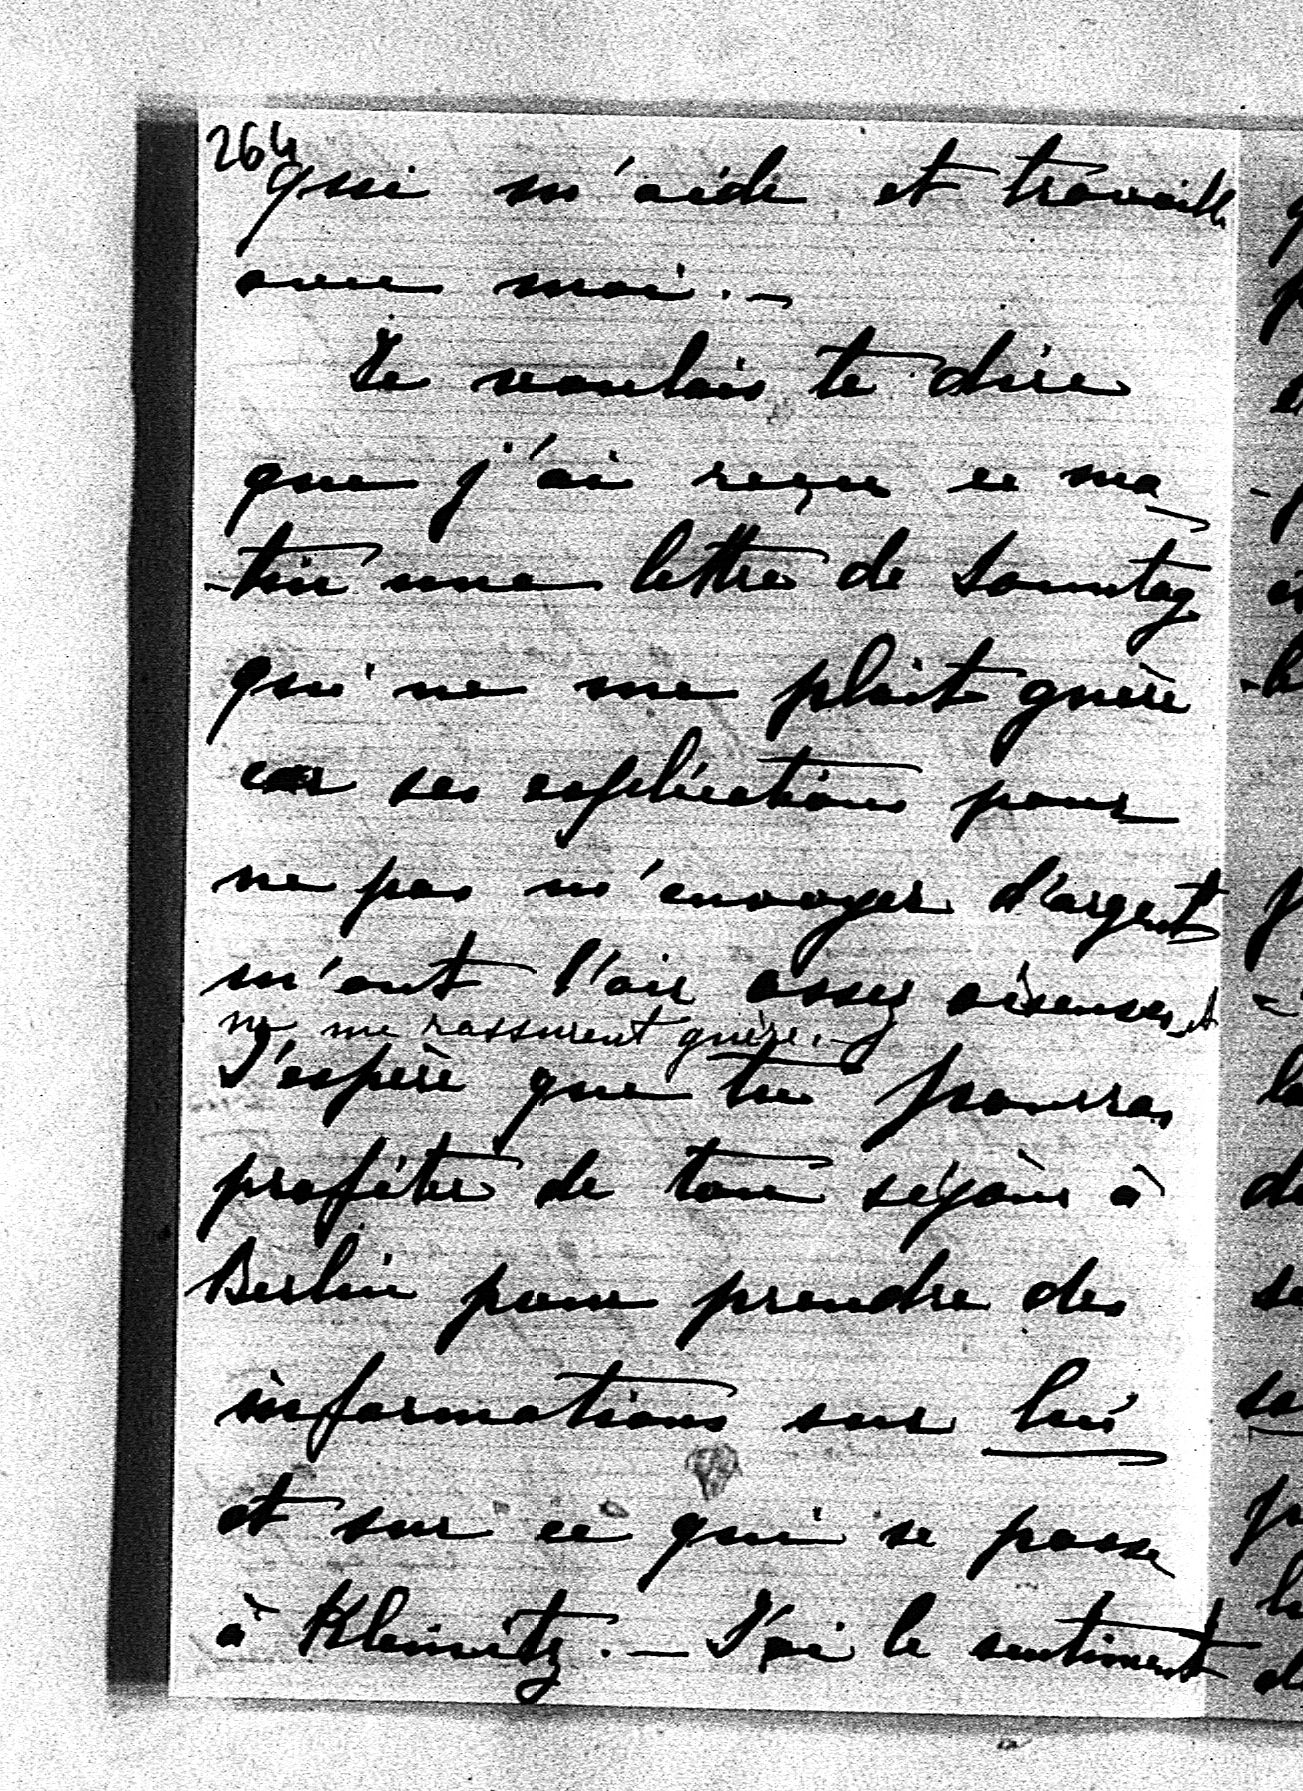 264
qui m'aide et travaille
avec moi. —
Je voulais te dire
que j'ai reçu ce ma
-tin une lettre de Sonntag
qui ne me plait guère
car ses explications pour
ne pas m'envoyer d'argent
m'ont l'air assez oiseuses et
ne me rassurent guère. —
J'espère que tu pourras
profiter de ton séjour à
Berlin pour prendre des
informations sur lui
et sur ce qui se passe
à Klemitz. — J'ai le sentiment